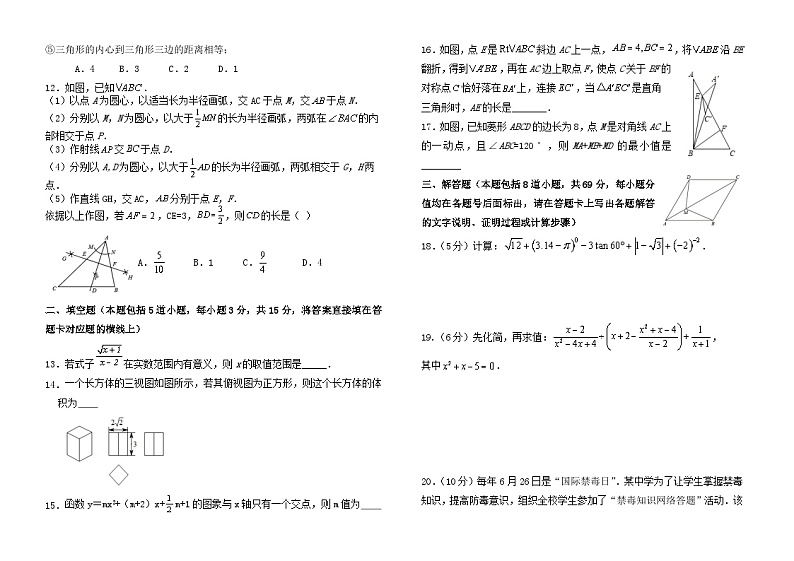 ⑤三角形的内心到三角形三边的距离相等;
A.4 B.3 C.2 D.1
12.如图,已知VABC.
(1)以点A为圆心,以适当长为半径画弧,交AC于点M,交AB于点N.
(2)分别以M,N为圆心,以大于1/2MN的长为半径画弧,两弧在∠BAC的内
部相交于点P.
(3)作射线AP交BC于点D.
(4)分别以A,D为圆心,以大于1/2AD的长为半径画弧,两弧相交于G,H两
点.
(5)作直线GH,交AC,AB分别于点E,F.
依据以上作图,若AF=2,CE=3,BD=3/2,则CD的长是( )
A
M
N
G
E
F
P
H
C
D
B
A.5/10 B.1 C.9/4 D.4
二、填空题(本题包括5道小题,每小题3分,共15分,将答案直接填在答
题卡对应题的横线上)
13.若式子√(x+1)/(x-2)在实数范围内有意义,则x的取值范围是_____.
14.一个长方体的三视图如图所示,若其俯视图为正方形,则这个长方体的体
积为____
2√2
3
15.函数y=mx²+(m+2)x+1/2m+1的图象与x轴只有一个交点,则m值为____
16.如图,点E是RtVABC斜边AC上一点,AB=4,BC=2,将VABE沿BE
翻折,得到VA′BE,再在AC边上取点F,使点C关于BF的
对称点C′恰好落在BA′上,连接EC′,当△A′EC′是直角
三角形时,AE的长是_______.
A
A′
E
C′
F
B
C
17.如图,已知菱形ABCD的边长为8,点M是对角线AC上
的一动点,且∠ABC=120°,则MA+MB+MD的最小值是
________
D
C
M
A
B
三、解答题(本题包括8道小题,共69分,每小题分
值均在各题号后面标出,请在答题卡上写出各题解答
的文字说明、证明过程或计算步骤)
18.(5分)计算:√12+(3.14-π)⁰-3tan60°+|1-√3|+(-2)⁻².
19.(6分)先化简,再求值:(x-2)/(x²-4x+4)÷(x+2-(x²+x-4)/(x-2))+1/(x+1),
其中x²+x-5=0.
20.(10分)每年6月26日是“国际禁毒日”.某中学为了让学生掌握禁毒
知识,提高防毒意识,组织全校学生参加了“禁毒知识网络答题”活动.该